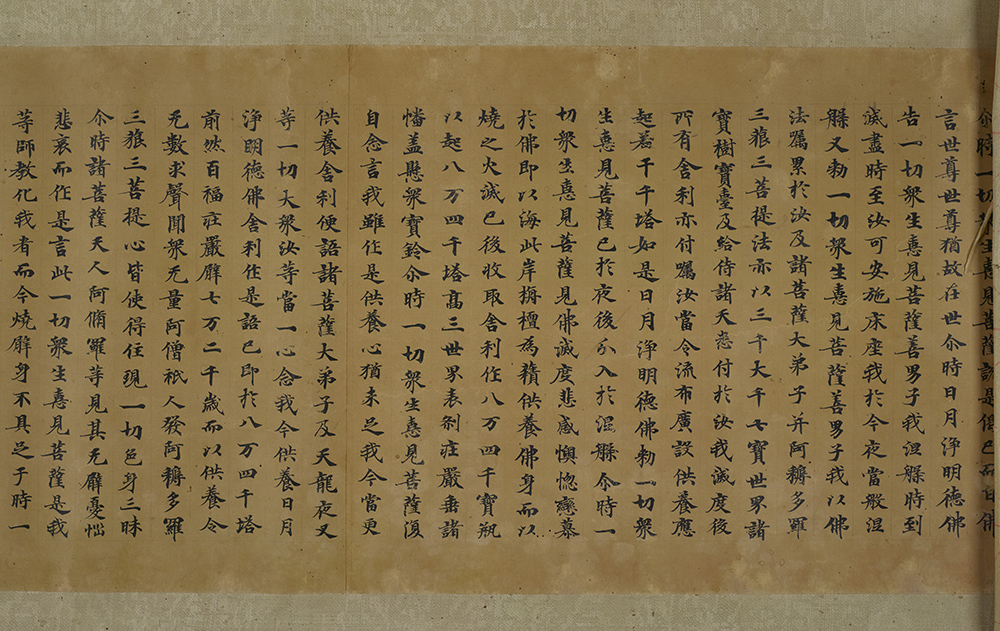 尒時一切衆生憙見菩薩說是偈已而白佛
言世尊世尊猶故在世尒時日月淨明德佛
告一切衆生憙見菩薩善男子我涅槃時到
滅盡時至汝可安施床座我於今夜當般涅
槃又勑一切衆生憙見菩薩善男子我以佛
法囑累於汝及諸菩薩大弟子并阿耨多羅
三藐三菩提法亦以三千大千七寶世界諸
寶樹寶臺及給侍諸天悉付於汝我滅度後
所有舍利亦付囑汝當令流布廣設供養應
起若千千塔如是日月淨明德佛勑一切衆
生憙見菩薩已於夜後分入於涅槃尒時一
切衆生憙見菩薩見佛滅度悲感懊惱戀慕
於佛即以海此岸栴檀為𧂐供養佛身而以
燒之火滅已後收取舍利作八万四千寶瓶
以起八万四千塔高三世界表刹莊嚴垂諸
幡盖懸衆寶鈴尒時一切衆生憙見菩薩復
自念言我雖作是供養心猶未足我今當更
供養舍利便語諸菩薩大弟子及天龍夜叉
等一切大衆汝等當一心念我今供養日月
淨明德佛舍利作是語已即於八万四千塔
前然百福莊嚴臂七万二千歲而以供養令
无數求聲聞衆无量阿僧祇人發阿耨多羅
三藐三菩提心皆使得住現一切色身三昧
尒時諸菩薩天人阿脩羅等見其无臂憂惱
悲哀而作是言此一切衆生憙見菩薩是我
等師教化我者而今燒臂身不具足于時一